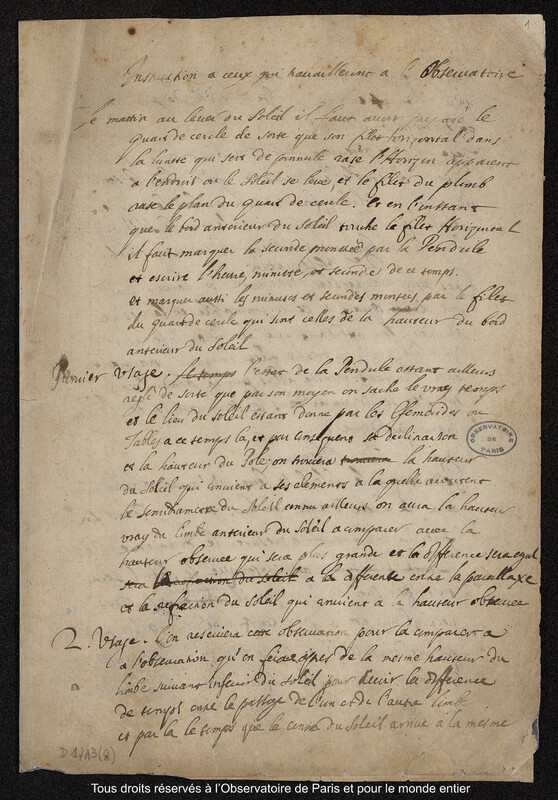 1
Instruction a ceux qui travaillent a l'Observatoire
Le matin au lever du Soleil il faut avoir preparé le
quart de cercle de sorte que son filet horizontal dans
la lunete qui sert de pinnule rase l'Horizon apparent
a l'endroit ou le Soleil se leve, et le filet du plomb
rase le plan du quart de cercle. et en l'instant
que le bord anterieur du Soleil touche le filet Horizontal
il faut marquer la seconde montrée par la Pendule
et escrire l'heure, minutte, et seconde de ce temps.
et marquer aussi les minutes et secondes par le filet
du quart de cercle qui sont celles de la hauteur du bord
anterieur du Soleil
Premier Usage. le temps l'estat de la Pendule estant ailleurs
reglé de sorte que par son moyen on sache le vray temps
et le lieu du Soleil estant donné par les Ephemerides ou
Tables a ce temps la, et par consequent sa declinaison
et la hauteur du Pole, on trouvera la hauteur
du Soleil qui convient a ses elements a la quelle
le semidiametre du Soleil connu ailleurs on aura la hauteur
vraye du limbe anterieur du Soleil a comparer avec la
hauteur observée qui sera plus grande et la difference sera egal
sera la refraction du Soleil a la difference entre la parallaxe
et la refraction du Soleil qui convient a la hauteur observée
2. Usage. L'on reservera cette observation pour la comparer a
a l'observation qu'on fera apres de la mesme hauteur du
limbe suivant inferieur du Soleil pour avoir la difference
de temps entre le passage de l'un et de l'autre limbe
et par la le temps que le centre du Soleil arrive a la mesme
OBSERVATOIRE
DE
PARIS
D 1/13 (8)
Tous droits réservés à l'Observatoire de Paris et pour le monde entier